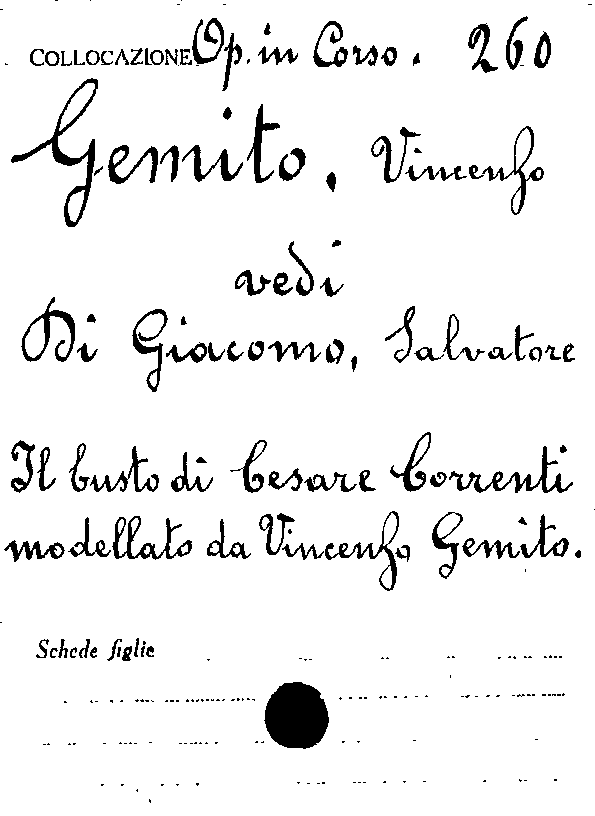 COLLOCAZIONE Op. in Corso. 260
Gemito, Vincenzo
vedi
Di Giacomo, Salvatore
Il busto di Cesare Correnti
modellato da Vincenzo Gemito.
Schede figlie